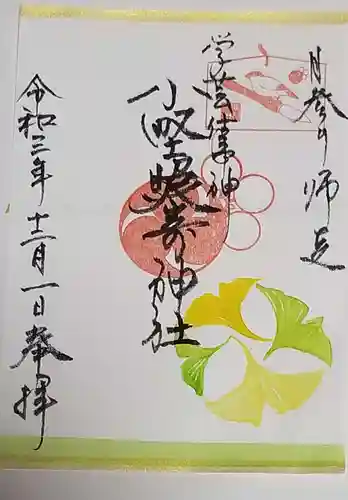 月参り 師走
学芸 神
小野照崎神社
令和三年十二月一日 奉拝